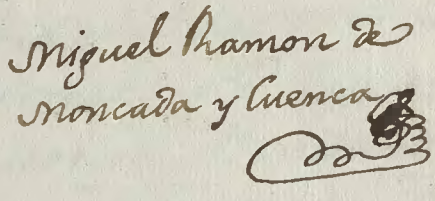 Miguel Ramon de
Moncada y Cuenca